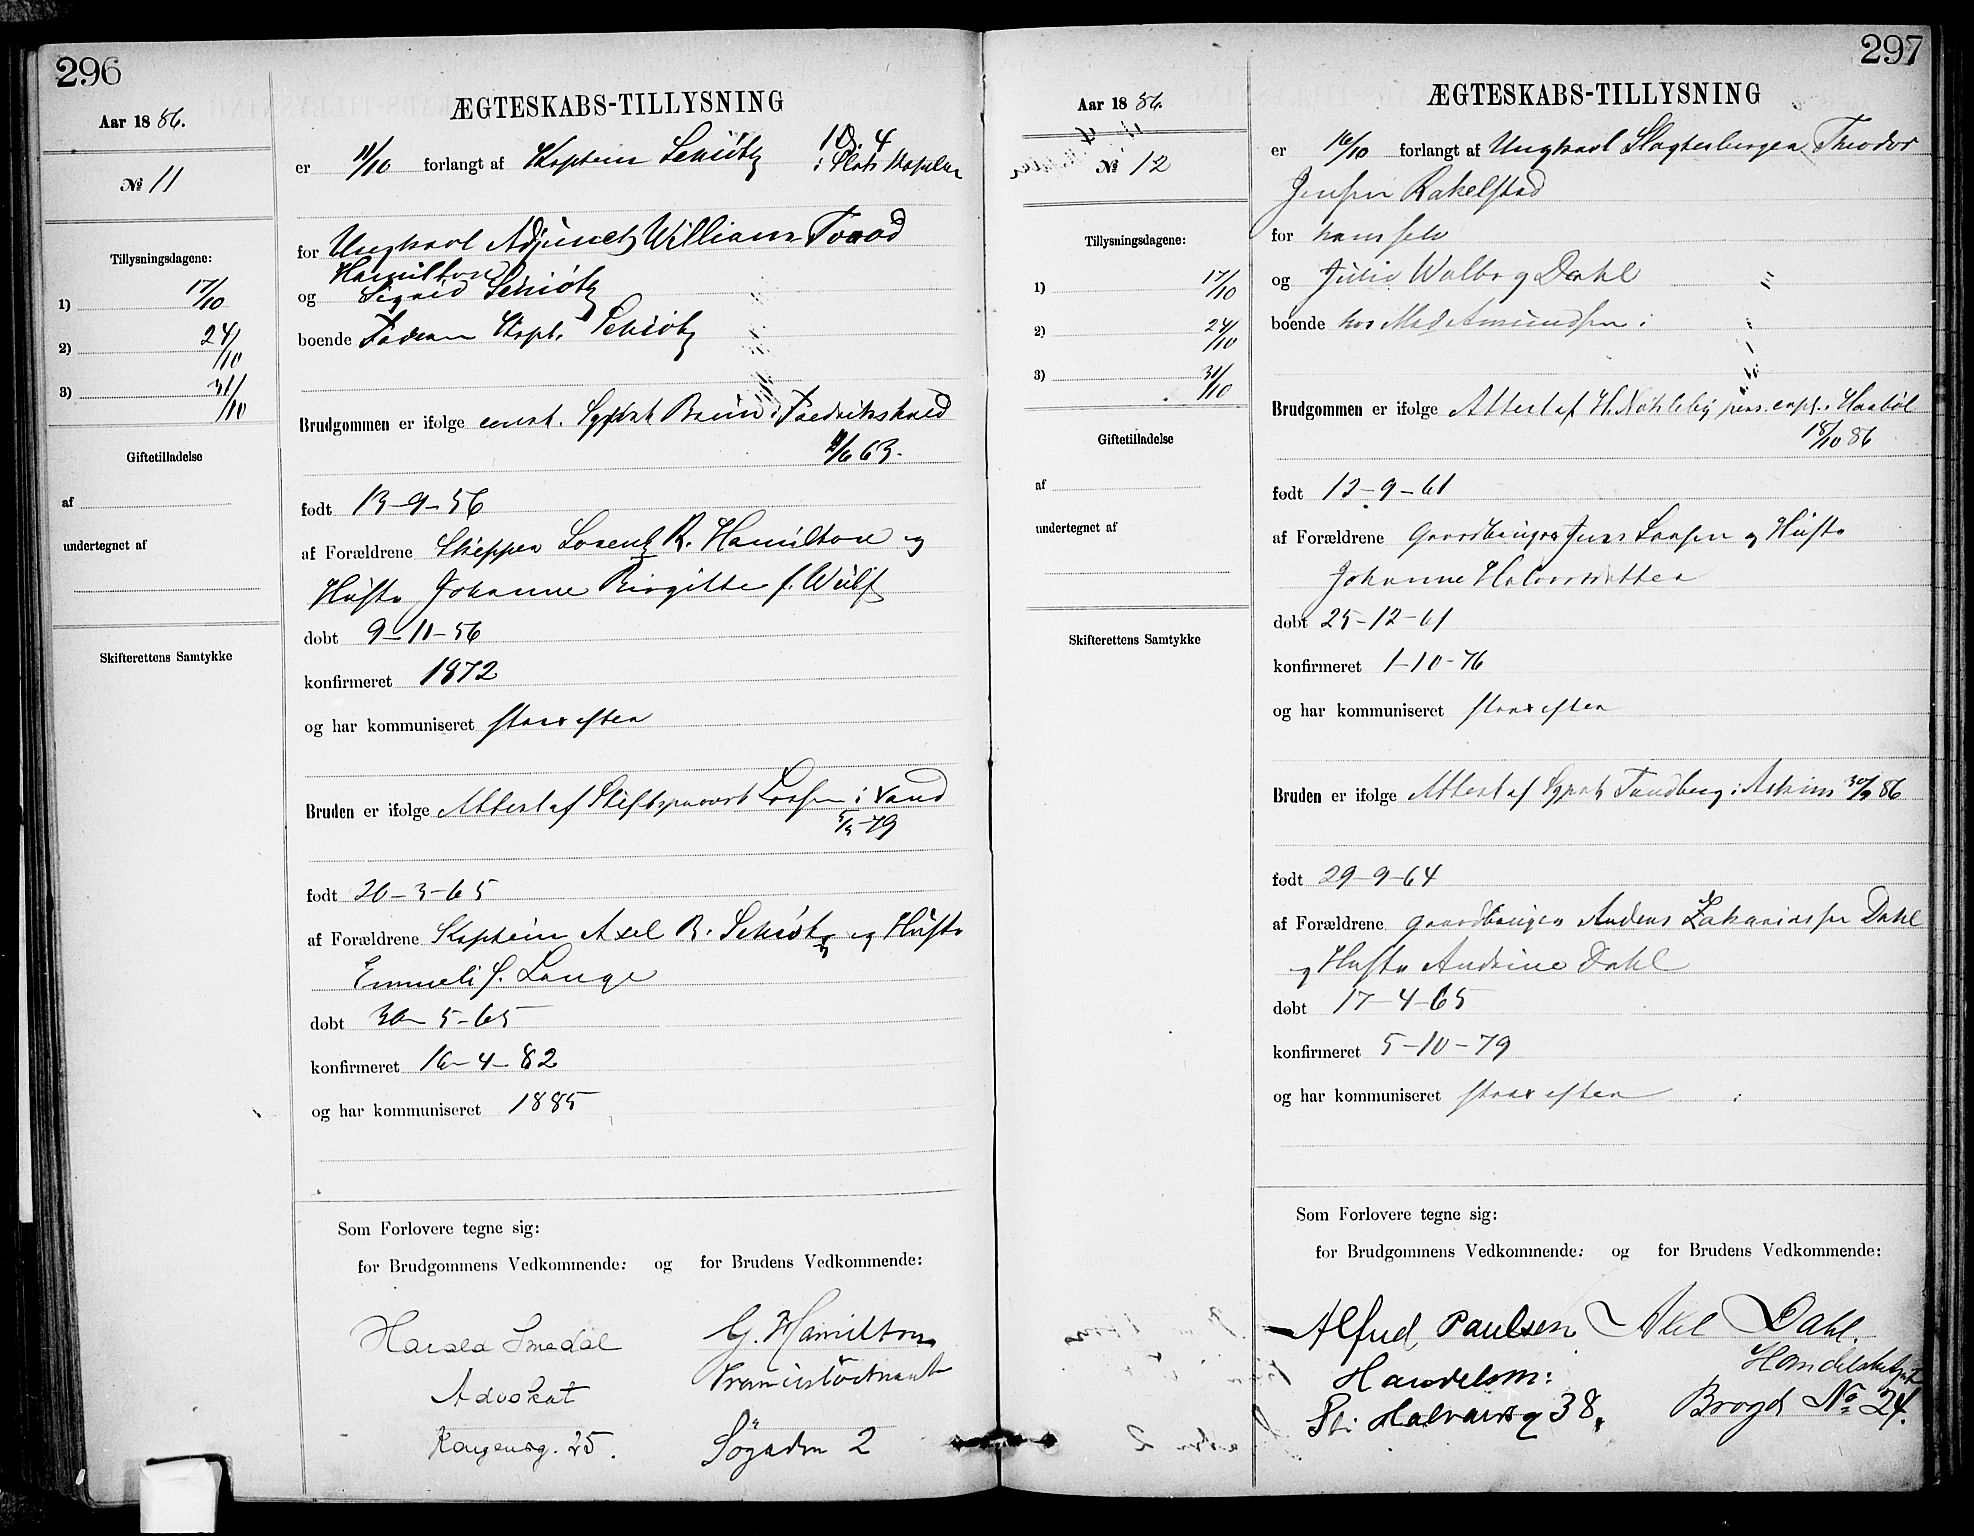 296
Aar 1886.
№ 11
Tillysningsdagene:
1) 17/10
2) 24/10
3) 31/10
Giftetilladelse
af
undertegnet af
Skifterettens Samtykke
ÆGTESKABS-TILLYSNING
er 11/10 forlangt af Kaptein Schiøtz i Slots Kapellet
for Ungkarl Adjunct William
Hamilton
og Sigrid Schiøtz
boende Faderen Kapt. Schiøtz
Brudgommen er ifølge const. Sgprst Bruun i Fredrikshald
63.
født 13-9-56
af Forældrene Skipper Lorentz R. Hamilton og
Hustr Johanne Birgitte f. Wulff
døbt 9-11-56
konfirmeret 1872
og har kommuniseret strax efter
Bruden er ifølge Attest af Stiftsprovst i
79
født 20-3-65
af Forældrene Kaptein Axel B. Schiøtz og Hustr
Emmeli f. Lange
døbt 30-5-65
konfirmeret 16-4-82
og har kommuniseret 1885
Som Forlovere tegne sig:
for Brudgommens Vedkommende: og for Brudens Vedkommende:
Harald Smedal G. Hamilton
Advokat Premierløitnant
Kongensg. 25. Søgaden 2
297
Aar 1886.
№ 12
Tillysningsdagene:
1) 17/10
2) 24/10
3) 31/10
Giftetilladelse
af
undertegnet af
Skifterettens Samtykke
ÆGTESKABS-TILLYSNING
er 16/10 forlangt af Ungkarl Theodor
Jensen Rakelstad
for ham selv
og Julie Walborg Dahl
boende hos Mad Amundsen i
Brudgommen er ifølge Attest af H. Nökleby pers. capl. i Haabøl
18/10 86
født 12-9-61
af Forældrene Gaardbruger Jens Larsen og Hustr
Johanne Halvorsdatter
døbt 25-12-61
konfirmeret 1-10-76
og har kommuniseret strax efter
Bruden er ifølge Attest af Sgprst Tandberg i Askim 30/9 86
født 29-9-64
af Forældrene gaardbruger Anders Zakariassen Dahl
og Hustr Andrine Dahl
døbt 17-4-65
konfirmeret 5-10-79
og har kommuniseret strax efter
Som Forlovere tegne sig:
for Brudgommens Vedkommende: og for Brudens Vedkommende:
Alfred Paulsen Axel Dahl.
Handelsm:
St: Halvards g 38. Brogd No 24.